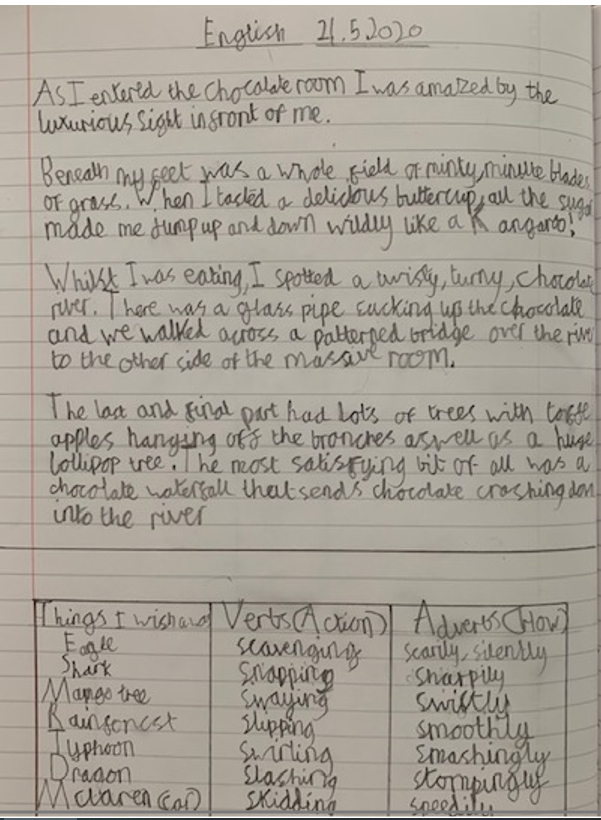 English 21.5.2020
As I entered the chocolate room I was amazed by the
luxurious sight infront of me.
Beneath my feet was a whole field of minty, minute blades
of grass. When I tasted a delicious buttercup, all the sugar
made me jump up and down wildly like a Kangaroo!
Whilst I was eating, I spotted a twisty, turny, chocolate
river. There was a glass pipe sucking up the chocolate
and we walked across a patterned bridge over the river
to the other side of the massive room.
The last and final part had lots of trees with toffe
apples hanging off the branches aswell as a huge
lollipop tree. The most satisfying bit of all was a
chocolate waterfall that sends chocolate crashing down
into the river
Things I wish and Verbs(Action) Adverbs(How)
Eagle scavenging scarily, silently
Shark snapping sharpily
Mango tree swaying swiftly
Rainforest slipping smoothly
Typhoon swirling smashingly
Dragon slashing stompingly
Mclaren (car) skidding speedily